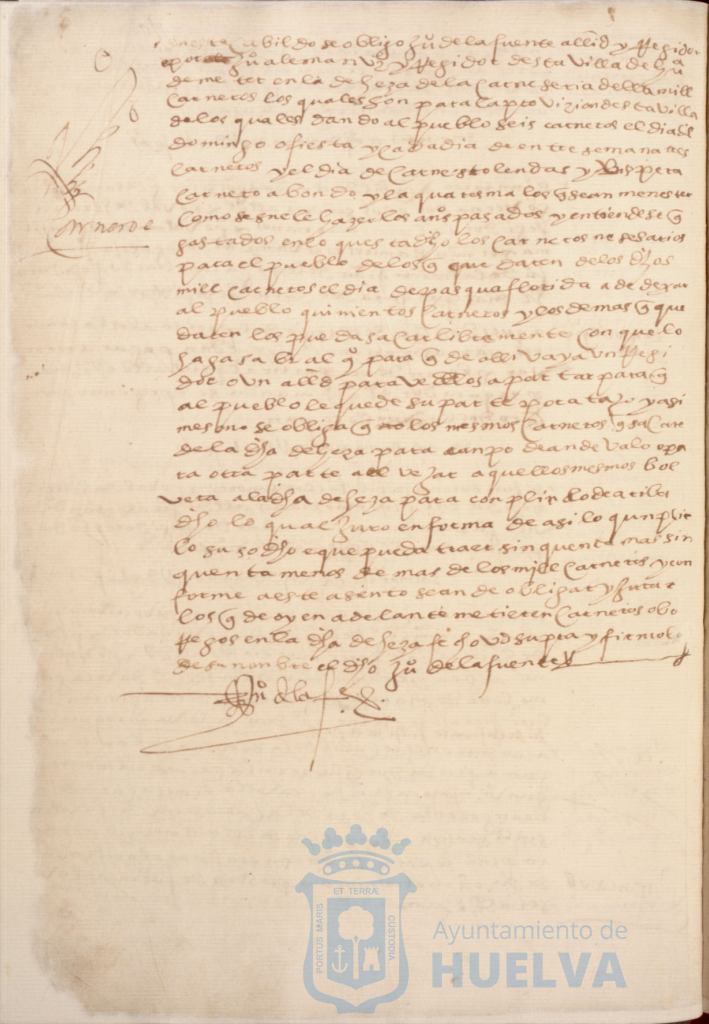 cabildo se obligo juº de la fuente alld y rregidor
juº aleman vzº y rregidor desta villa de
de meter en la deheza de la carneseria della mill
carneros los quales son para la provizion desta villa
de los quales dando al pueblo seis carneros el dia del
domingo o fiesta y cada dia de entre semana tres
carneros y el dia de carnestolendas y bispera
carnero abondo y la quaresma los q sean menester
como se suele hazer los años pasados y entiendese q
gastados en lo ques dicho los carneros nesesarios
para el pueblo de los q quedaren de los dhos
mill carneros el dia de pasqua florida a de dexar
al pueblo quinientos carneros y los demas q que
daren los pueda sacar libremente con que lo
haga saber al para q de alli vaya un rregi
dor o un alld para vellos apartar para q
al pueblo le quede su parte por a tajo y asi
mesmo se obliga q los mesmos carneros q sacare
de la dha deheza para canpo de andevalo o pa
ra otra parte aquellos mesmos bol
vera a la dha deheza para conplir lo de arriba
dho lo qual juro en forma de asi lo qunplir
lo susodho e que pueda traer sinquenta mas sin
quenta menos de mas de los mill carneros y con
forme a este asiento se an de obligar y jurar
los q de oy en adelante metieren carneros o bo
rregos en la dha deheza fecho ud supra y firmolo
de su nonbre el dho juº de la fuente
Carneros
Juº de la fe
ET TERRÆ
PORTUS MARIS
CUSTODIA
Ayuntamiento de
HUELVA